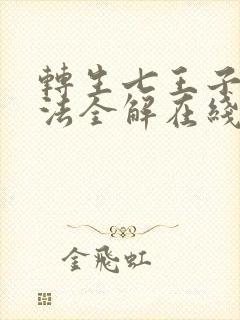 轉生七王子
法全解在綫
金飛虹